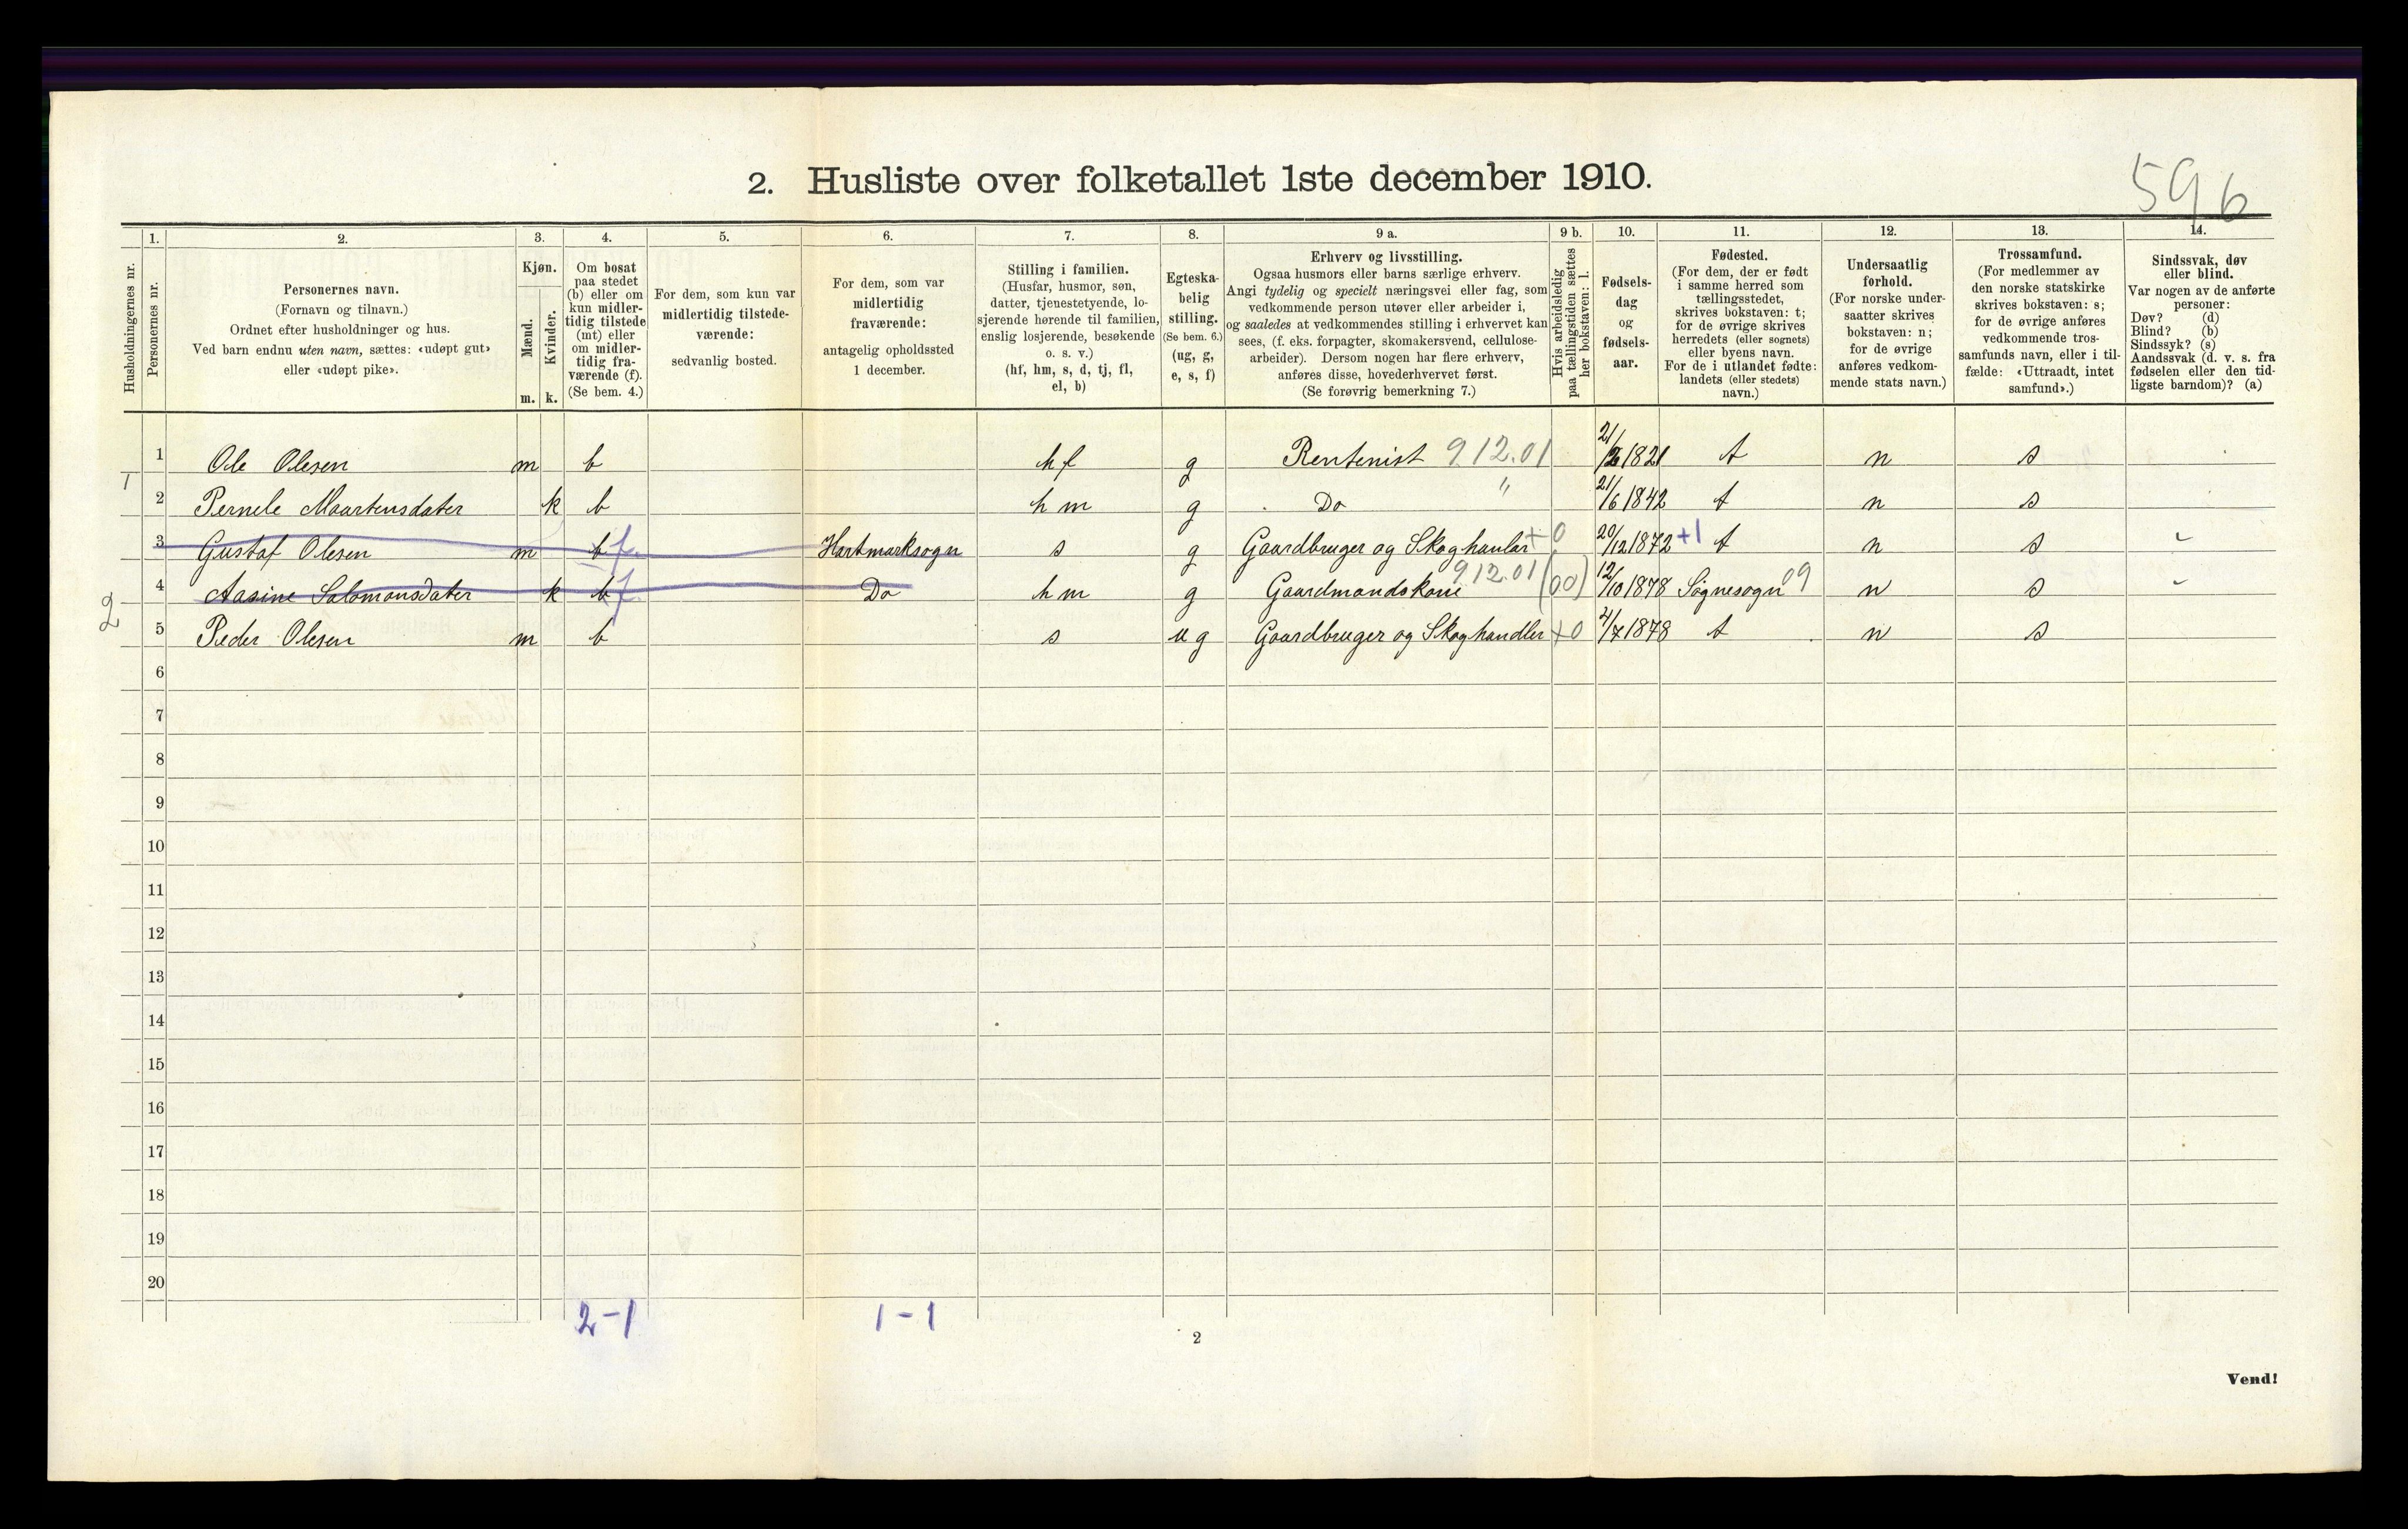 2. Husliste over folketallet 1ste december 1910.
596
Husholdningernes nr.
1.
Personernes nr.
2.
Personernes navn.
(Fornavn og tilnavn.)
Ordnet efter husholdninger og hus.
Ved barn endnu uten navn, sættes: «udøpt gut»
eller «udøpt pike».
3.
Kjøn.
Mænd.
Kvinder.
m. k.
4.
Om bosat
paa stedet
(b) eller om
kun midler-
tidig tilstede
(mt) eller
om midler-
tidig fra-
værende (f).
(Se bem. 4.)
5.
For dem, som kun var
midlertidig tilstede-
værende:
sedvanlig bosted.
6.
For dem, som var
midlertidig
fraværende:
antagelig opholdssted
1 december.
7.
Stilling i familien.
(Husfar, husmor, søn,
datter, tjenestetyende, lo-
sjerende hørende til familien,
enslig losjerende, besøkende
o. s. v.)
(hf, hm, s, d, tj, fl,
el, b)
8.
Egteska-
belig
stilling.
(Se bem. 6.)
(ug, g,
e, s, f)
9 a.
Erhverv og livsstilling.
Ogsaa husmors eller barns særlige erhverv.
Angi tydelig og specielt næringsvei eller fag, som
vedkommende person utøver eller arbeider i,
og saaledes at vedkommendes stilling i erhvervet kan
sees, (f. eks. forpagter, skomakersvend, cellulose-
arbeider). Dersom nogen har flere erhverv,
anføres disse, hovederhvervet først.
(Se forøvrig bemerkning 7.)
9 b.
Hvis arbeidsledig
paa tællingstiden sættes
her bokstaven: l.
10.
Fødsels-
dag
og
fødsels-
aar.
11.
Fødested.
(For dem, der er født
i samme herred som
tællingsstedet,
skrives bokstaven: t;
for de øvrige skrives
herredets (eller sognets)
eller byens navn.
For de i utlandet fødte:
landets (eller stedets)
navn.)
12.
Undersaatlig
forhold.
(For norske under-
saatter skrives
bokstaven: n;
for de øvrige
anføres vedkom-
mende stats navn.)
13.
Trossamfund.
(For medlemmer av
den norske statskirke
skrives bokstaven: s;
for de øvrige anføres
vedkommende tros-
samfunds navn, eller i til-
fælde: «Uttraadt, intet
samfund».)
14.
Sindssvak, døv
eller blind.
Var nogen av de anførte
personer:
Døv? (d)
Blind? (b)
Sindssyk? (s)
Aandssvak (d. v. s. fra
fødselen eller den tid-
ligste barndom)? (a)
1 1 Ole Olesen m b hf g Rentenist 912.01 21/2 1821 t n s
2 Pernele Maartensdater k b hm g Do " 21/6 1842 t n s
3 Gustaf Olesen m b f. Hartmarksogn s g Gaardbruger og Skoghanlar +0 20/12 1872 +1 t n s -
4 Aasine Salomonsdater k b f. Do hm g Gaardmandskone 912.01 (00) 12/10 1878 Søgnesogn 09 n s -
2 5 Peder Olesen m b s ug Gaardbruger og Skoghandler +0 4/7 1878 t n s
6
7
8
9
10
11
12
13
14
15
16
17
18
19
20
2-1 1-1
2
Vend!